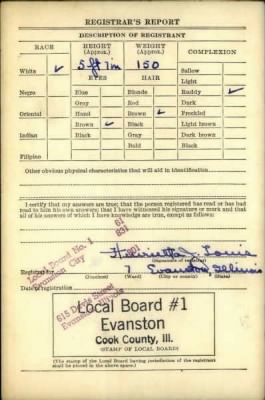 REGISTRAR'S REPORT
DESCRIPTION OF REGISTRANT
RACE HEIGHT (Approx.) WEIGHT (Approx.) COMPLEXION
White ✓ 5 ft 7 in 150 Sallow
EYES HAIR Light
Negro Blue Blonde Ruddy ✓
Gray Red Dark
Oriental Hazel Brown ✓ Freckled
Brown ✓ Black Light brown
Indian Black Gray Dark brown
Bald Black
Filipino
Other obvious physical characteristics that will aid in identification
I certify that my answers are true; that the person registered has read or has had
read to him his own answers; that I have witnessed his signature or mark and that
all of his answers of which I have knowledge are true, except as follows:
Local Board No. 1
Evanston City
61
031
(Signature of registrar)
Registrar for 7 Evanston, Illinois
(Precinct) (Ward) (City or county) (State)
Date of registration
Local Board #1
Evanston
Cook County, Ill.
(STAMP OF LOCAL BOARD)
(The stamp of the Local Board having jurisdiction of the registrant
shall be placed in the above space.)